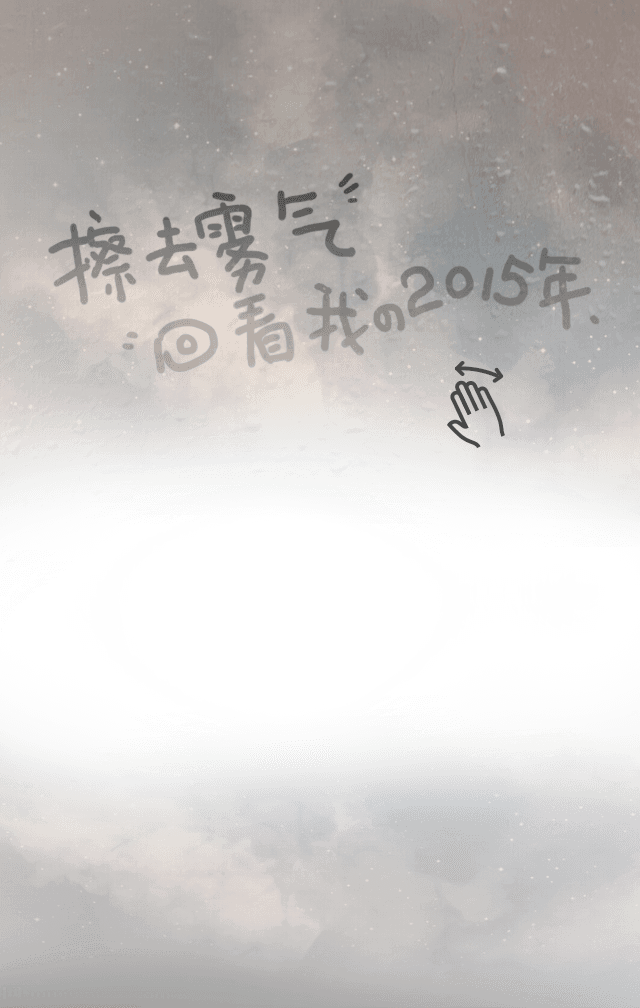 擦去雾气
回看我の2015年.